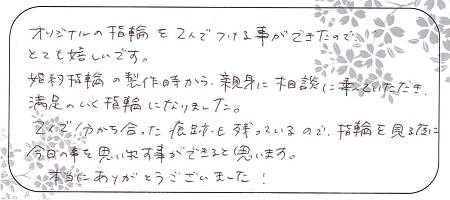 オリジナルの指輪を2人でつける事ができたので、
とても嬉しいです。
婚約指輪の製作時から、親身に相談に乗っていただき、
満足のいく指輪になりました。
2人で分かち合った痕跡も残っているので、指輪を見る度に
今日の事を思い出す事ができると思います。
本当にありがとうございました！